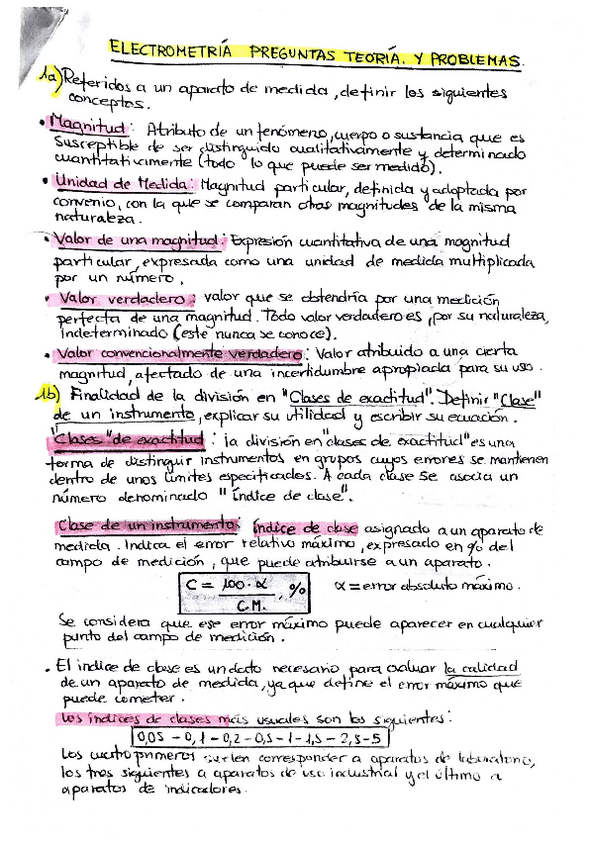 ELECTROMETRÍA PREGUNTAS TEORÍA. Y PROBLEMAS.
1a) Referidos a un aparato de medida, definir los siguientes
conceptos.
• Magnitud: Atributo de un fenómeno, cuerpo o sustancia que es
susceptible de ser distinguido cualitativamente y determinado
cuantitativamente (todo lo que puede ser medido).
• Unidad de Medida: Magnitud particular, definida y adoptada por
convenio, con la que se comparan otras magnitudes de la misma
naturaleza.
• Valor de una magnitud: Expresión cuantitativa de una magnitud
particular, expresada como una unidad de medida multiplicada
por un número.
• Valor verdadero: valor que se obtendría por una medición
perfecta de una magnitud. Todo valor verdadero es, por su naturaleza,
indeterminado (este nunca se conoce).
• Valor convencionalmente verdadero: Valor atribuido a una cierta
magnitud, afectado de una incertidumbre apropiada para su uso.
1b) Finalidad de la división en "Clases de exactitud". Definir "Clase"
de un instrumento, explicar su utilidad y escribir su ecuación.
"Clases" de exactitud: la división en "clases de exactitud" es una
forma de distinguir instrumentos en grupos cuyos errores se mantienen
dentro de unos límites especificados. A cada clase se asocia un
número denominado "índice de clase".
Clase de un instrumento: índice de clase asignado a un aparato de
medida. Indica el error relativo máximo, expresado en % del
campo de medición, que puede atribuirse a un aparato.
C = 100·α / C.M. , % α = error absoluto máximo.
Se considera que ese error máximo puede aparecer en cualquier
punto del campo de medición.
• El índice de clase es un dato necesario para evaluar la calidad
de un aparato de medida, ya que define el error máximo que
puede cometer.
Los índices de clases más usuales son los siguientes:
0,05 - 0,1 - 0,2 - 0,5 - 1 - 1,5 - 2,5 - 5
Los cuatro primeros suelen corresponder a aparatos de laboratorio,
los tres siguientes a aparatos de uso industrial y el último a
aparatos de indicadores.